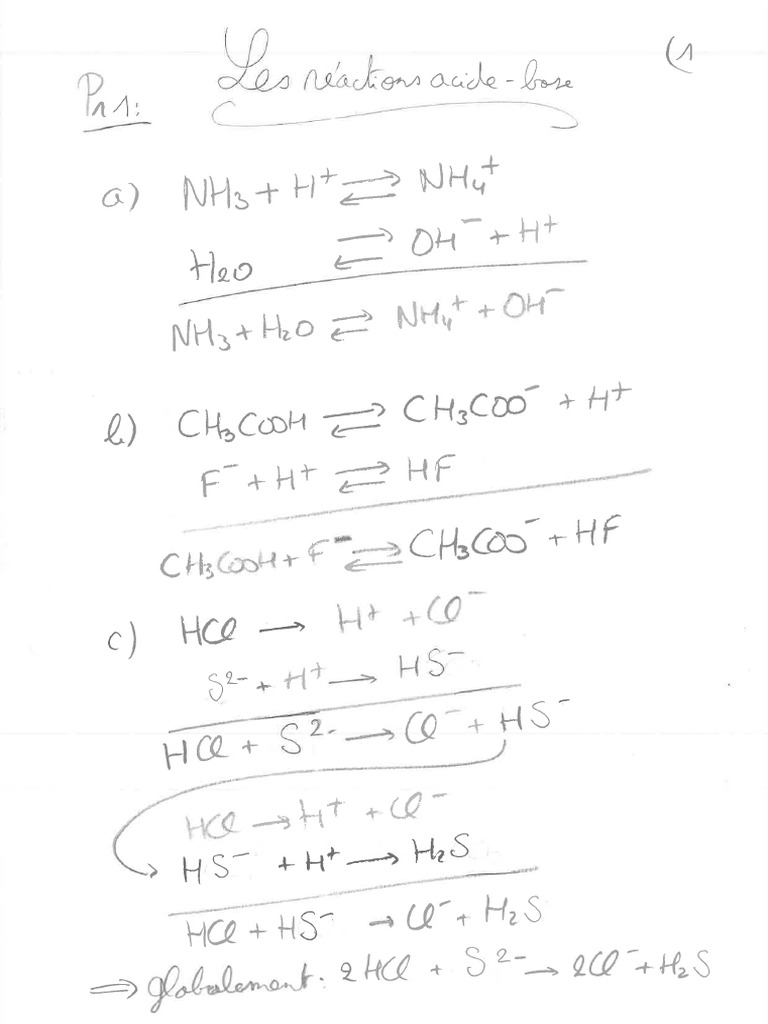 (1
Les réactions acide-base
Pr 1:
a) NH3 + H+ ⇌ NH4+
H2O ⇌ OH- + H+
NH3 + H2O ⇌ NH4+ + OH-
b) CH3COOH ⇌ CH3COO- + H+
F- + H+ ⇌ HF
CH3COOH + F- ⇌ CH3COO- + HF
c) HCl → H+ + Cl-
S2- + H+ → HS-
HCl + S2- → Cl- + HS-
HCl → H+ + Cl-
HS- + H+ → H2S
HCl + HS- → Cl- + H2S
⇒ globalement: 2HCl + S2- → 2Cl- + H2S